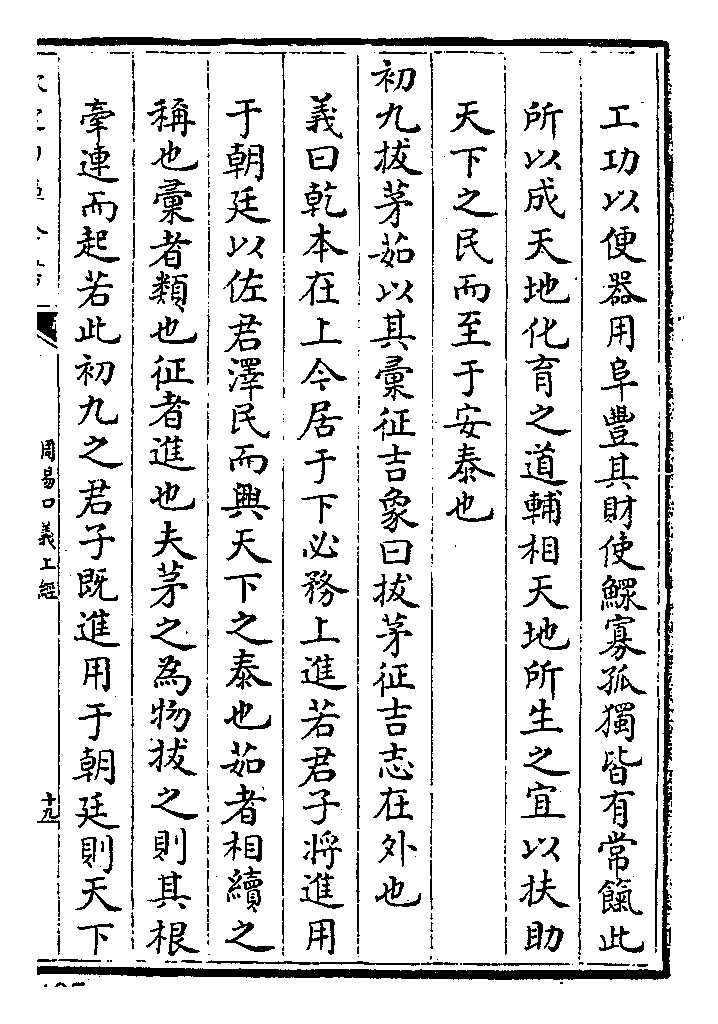 工功以便器用阜豐其財使鰥寡孤獨皆有常餼此
所以成天地化育之道輔相天地所生之宜以扶助
天下之民而至于安泰也
初九拔茅茹以其彚征吉象曰拔茅征吉志在外也
義曰乾本在上今居于下必務上進若君子將進用
于朝廷以佐君澤民而興天下之泰也茹者相續之
稱也彚者類也征者進也夫茅之為物拔之則其根
牽連而起若此初九之君子既進用于朝廷則天下
周易口義上經
十九